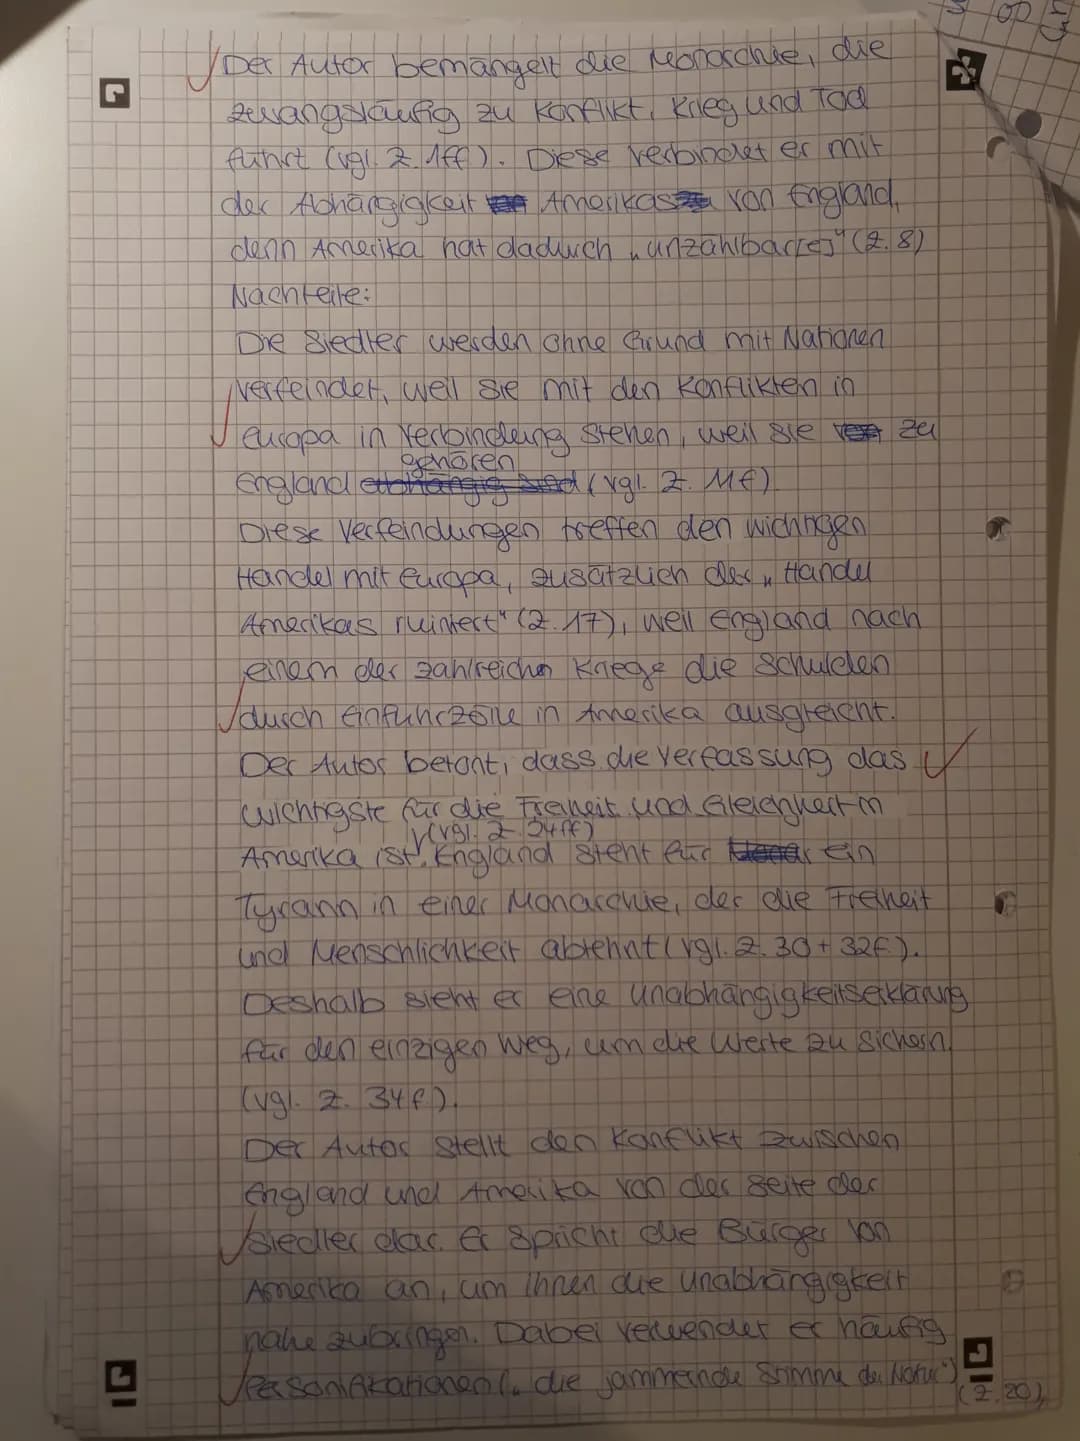 Der Autor bemängelt die Monarchie, die
zwangsläufig zu Konflikt, Krieg und Tod
führt (vgl. Z. 1ff). Diese verbindet er mit
der Abhängigkeit Amerikas von England,
denn Amerika hat dadurch „unzählbar[e]" (Z. 8)
Nachteile:
Die Siedler werden ohne Grund mit Nationen
verfeindet, weil sie mit den Konflikten in
Europa in Verbindung stehen, weil sie zu
England gehören (vgl. Z. 11f)
Diese Verfeindungen treffen den wichtigen
Handel mit Europa, zusätzlich der „Handel
Amerikas ruiniert" (Z. 17), weil England nach
einem der zahlreichen Kriege die Schulden
durch Einfuhrzölle in Amerika ausgleicht.
Der Autor betont, dass die Verfassung das
wichtigste für die Freiheit und Gleichheit in
Amerika ist (vgl. Z. 24ff). England steht für ein
Tyrann in einer Monarchie, der die Freiheit
und Menschlichkeit ablehnt (vgl. Z. 30 + 32f).
Deshalb sieht er eine Unabhängigkeitserklärung
für den einzigen Weg, um die Werte zu sichern
(vgl. Z. 34f).
Der Autor stellt den Konflikt zwischen
England und Amerika von der Seite der
Siedler dar. Er spricht die Bürger von
Amerika an, um ihnen die Unabhängigkeit
nahe zubringen. Dabei verwendet er häufig
Personifikationen („die jammernde Stimme der Natur")
(Z. 20),